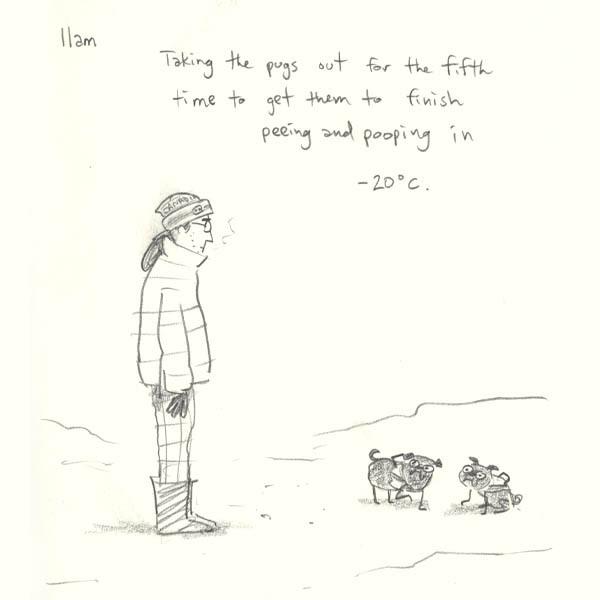 11am
Taking the pugs out for the fifth
time to get them to finish
peeing and pooping in
-20°C.
CANADA